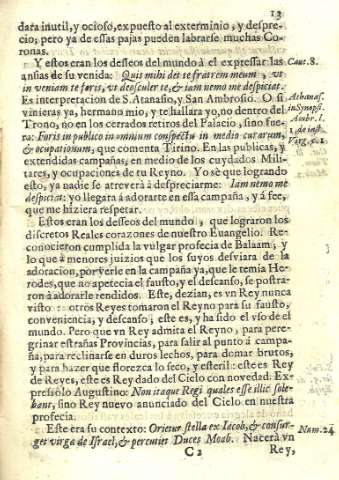 13
dara inutil, y ocioso, expuesto al exterminio, y despre-
cio; pero ya de essas pajas pueden labrarse muchas Co-
ronas.
Y estos eran los desseos del mundo à el expressar las
ansias de su venida: Quis mihi det te fratrem meum, vt
in veniam te foris, vt deosculer te, & iam nemo me despiciat.
Cant. 8.
Es interpretacion de S. Atanasio, y San Ambrosio. O si
vinieras ya, hermano mio, y te hallara yo, no dentro del
Trono, no en los cerrados retiros del Palacio, sino fue-
ra: Foris in publico in omnium conspectu in medio curarum,
& ocupationum, que comenta Tirino. En las publicas, y
Athanas.
in Synopsi
Ambr. l.
extendidas campañas, en medio de los cuydados Mili-
tares, y ocupaciones de tu Reyno. Yo sè que logrando
esto, ya nadie se atreverà à despreciarme: Iam nemo me
despiciat: yo llegara à adorarte en essa campaña, y á fee,
que me hiziera respetar.
Estos eran los desseos del mundo, que lograron los
discretos Reales corazones de nuestro Euangelio. Re-
conocieron cumplida la vulgar profecia de Balaam; y
lo que à menores juizios que los suyos desviara de la
adoracion, por verle en la campaña ya, que le temia He-
rodes, que no apetecia el fausto, y el descanso, se postra-
ron à adorarle rendidos. Este, dezian, es vn Rey nunca
visto: otros Reyes tomaron el Reyno para su fausto,
conveniencia, y descanso; este es, y ha sido el vso de el
mundo. Pero que vn Rey admita el Reyno, para pere-
grinar estrañas Provincias, para salir al punto á campa-
ña, para reclinarse en duros lechos, para domar brutos,
y para hazer que florezca lo seco, y esteril: este es Rey
de Reyes, este es Rey dado del Cielo con novedad. Ex-
presiòlo Augustino: Non itaque Regi quales esse illic sole-
bant, sino Rey nuevo anunciado del Cielo en nuestra
profecia.
Este era su contexto: Orietur stella ex Iacob, & consur-
ges virga de Israel, & percutiet Duces Moab. Nacerà vn
Num. 24
C 2
Rey,